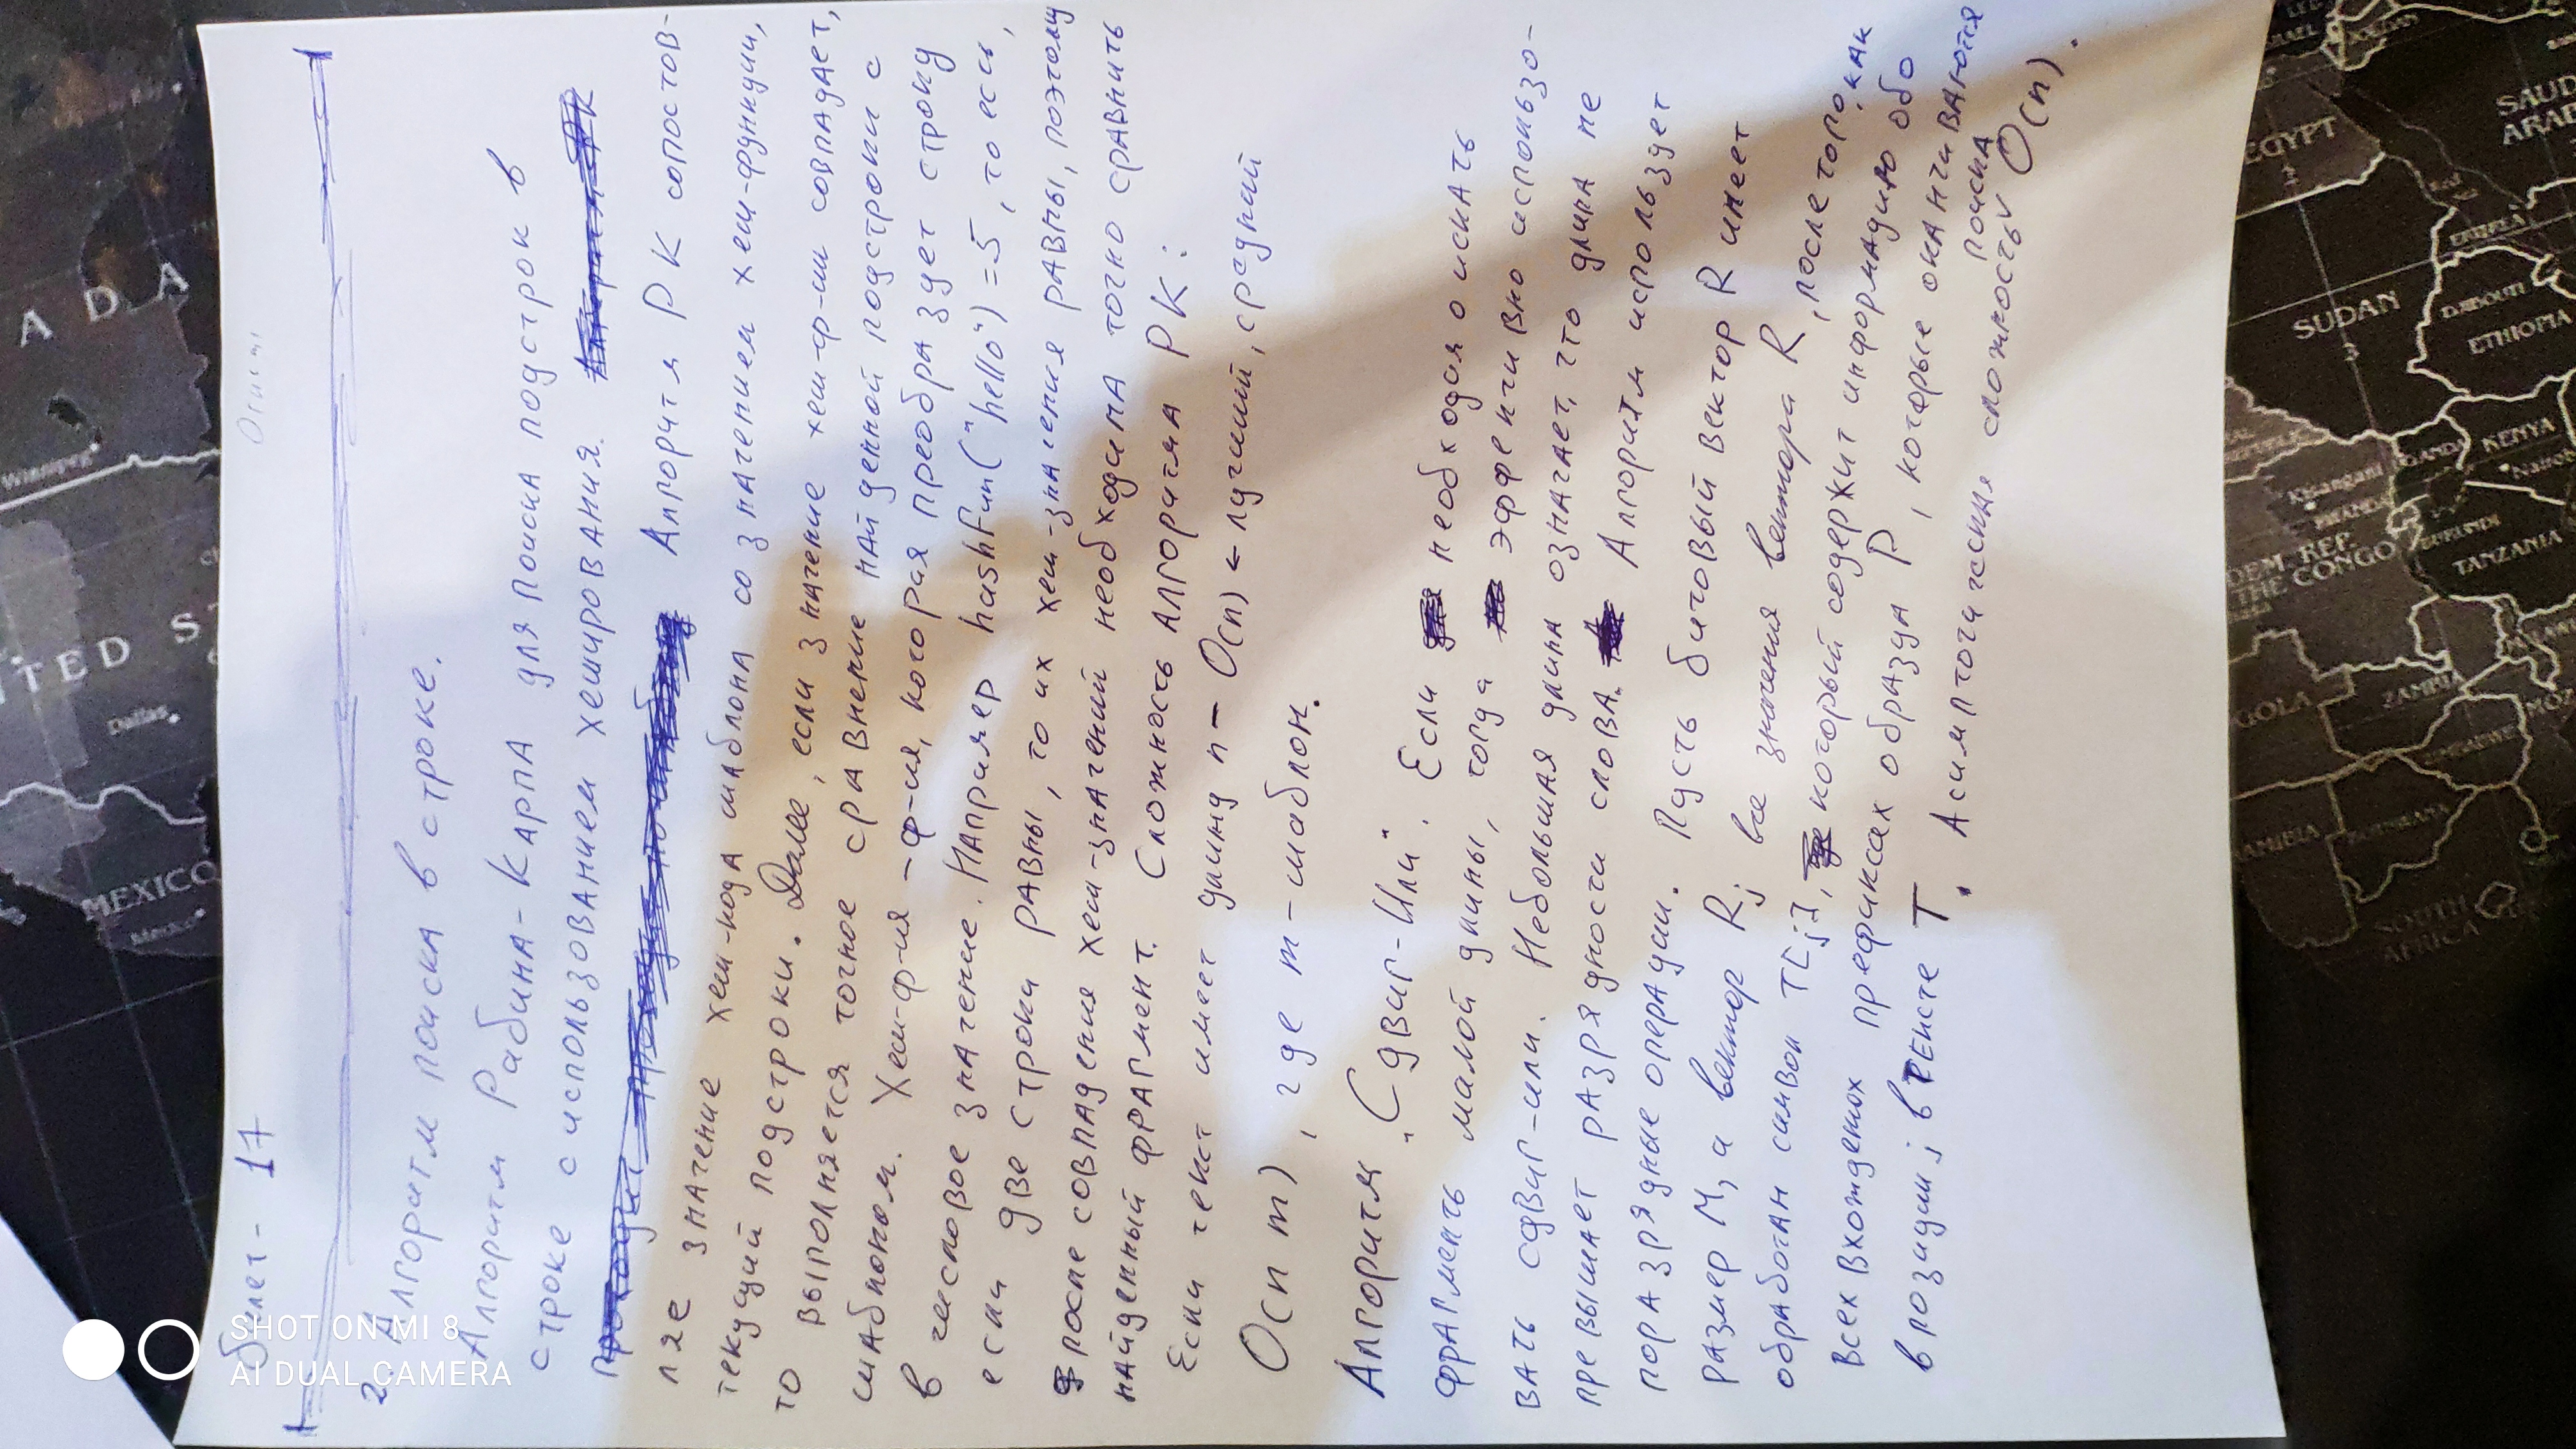 SHOT ON MI 8
AI DUAL CAMERA
MEXICO
TED S
Dallas
Winnipeg
ADA
Билет - 17
2. Алгоритм поиска в строке.
Алгоритм Рабина-Карпа для поиска подстрок в
строке с использованием хеширования.
Алгоритм РК сопостав-
ляе значение хеш-кода шаблона со значением хеш-функции,
текущий подстроки. Далее, если значение хеш-ф-ии совпадает,
то выполняется точное сравнение найденной подстроки с
шаблоном. Хеш-ф-ия - ф-ия, которая преобразует строку
в числовое значение. Например hashFun("hello") = 5, то есь,
если две строки равны, то их хеш-значения равны, поэтому
после совпадения хеш-значений необходима точно сравнить
найденный фрагмент. Сложность алгоритма РК:
Если текст имеет длину n - O(n) ← лучший, средний
O(n m), где m - шаблон.
Алгоритм "Сдвиг-Или". Если необходимо искать
фрагменть малой длины, тогда эффективно использо-
вать сдвиг-или. Небольшая длина означает, что длина не
превышает разрядности слова. Алгоритм использует
поразрядные операции. Пусть битовый вектор R имеет
размер M, а вектор Rj все значения вектора R, после того, как
обработан символ T[j], который содержит информацию обо
всех вхождениях префиксах образца P, которые оканчиваются
в позиции j в тексте T. Асимптотическая сложность поиска O(n).
ANGOLA
DEM. REP.
THE CONGO
SUDAN
EGYPT
SOUTH
AFRICA
ZAMBIA
TANZANIA
KENYA
ETHIOPIA
DJIBOUTI
SAUDI
ARAB